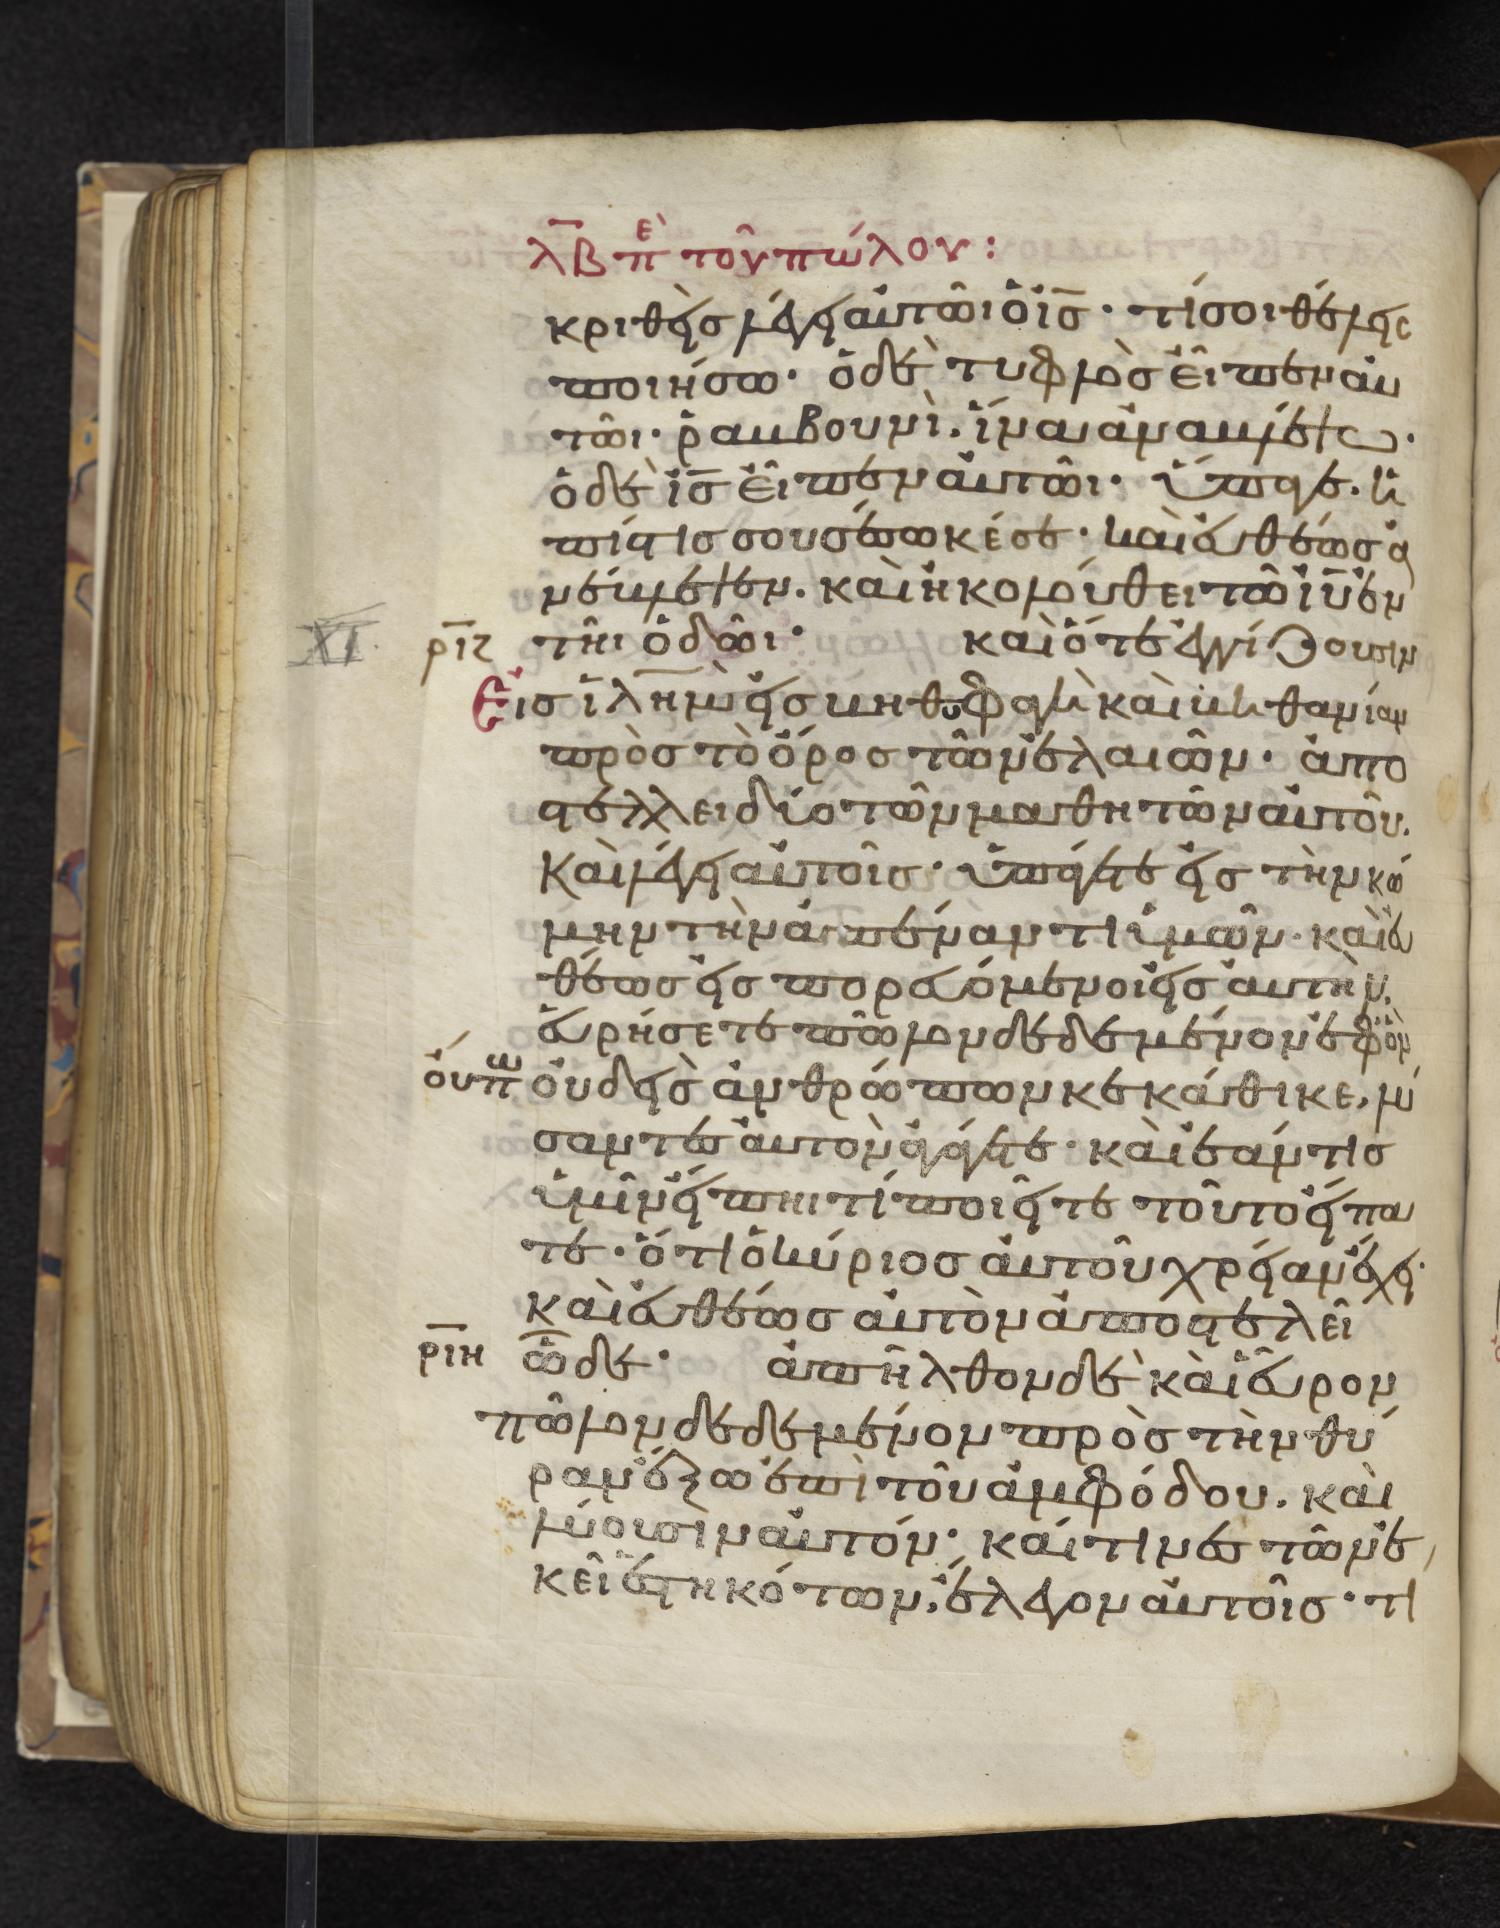 λ̅β̅ πὲ τοῦ πώλου:
κριθεὶς λέγει αὐτῶι ὁ ἰ̅ς̅· τί σοι θέλεις
ποιήσω· ὁ δὲ τυφλὸς εἶπεν αὐ
τῶι· ῥαββουνὶ. ἵνα ἀναβλέψω·
ὁ δὲ ἰ̅ς̅ εἶπεν αὐτῶι· ὕπαγε. ἡ
πίστις σου σέσωκέ σε· καὶ εὐθέως ἀ
νέβλεψεν. καὶ ἠκολούθει τῶ ἰ̅υ̅ ἐν
XI. ρ̅ι̅ζ̅ τῆι ὁδῶι· καὶ ὅτε ἐγγίζουσιν
Εἰς ἰ̅λ̅η̅μ̅ εἰς βηθσφαγὴ καὶ βηθανίαν
πρὸς τὸ ὄρος τῶν ἐλαιῶν· ἀπο
στέλλει δύο τῶν μαθητῶν αὐτοῦ.
Καὶ λέγει αὐτοῖς· ὑπάγετε εἰς τὴν κώ
μην τὴν ἀπέναντι ὑμῶν· καὶ εὐ
θέως εἰσπορευόμενοι εἰς αὐτὴν.
εὑρήσετε πῶλον δεδεμένον ἐφ' ὃν
οὔπω οὐδεὶς ἀνθρώπων κεκάθικε, λύ
σαντες αὐτὸν ἀγάγετε· καὶ ἐάν τις
ὑμῖν εἴπηι τί ποιεῖτε τοῦτο εἴπα
τε· ὅτι ὁ κύριος αὐτοῦ χρείαν ἔχει·
καὶ εὐθέως αὐτὸν ἀποστελεῖ
ρ̅ι̅η̅ ὧδε· ἀπῆλθον δὲ καὶ εὗρον
πῶλον δεδεμένον πρὸς τὴν θύ
ραν ἔξω ἐπὶ τοῦ ἀμφόδου. καὶ
λύουσιν αὐτόν· καί τινες τῶν ἐ
κεῖ ἑστηκότων, ἔλεγον αὐτοῖς· τί